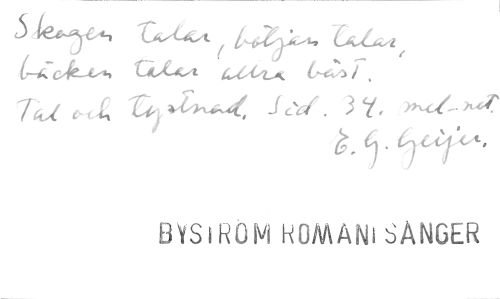 Skogen talar, böljan talar,
bäcken talar allra bäst.
Tal och tystnad. Sid. 34. mel-not.
E. G. Geijer.
BYSTRÖM ROMANI SÅNGER